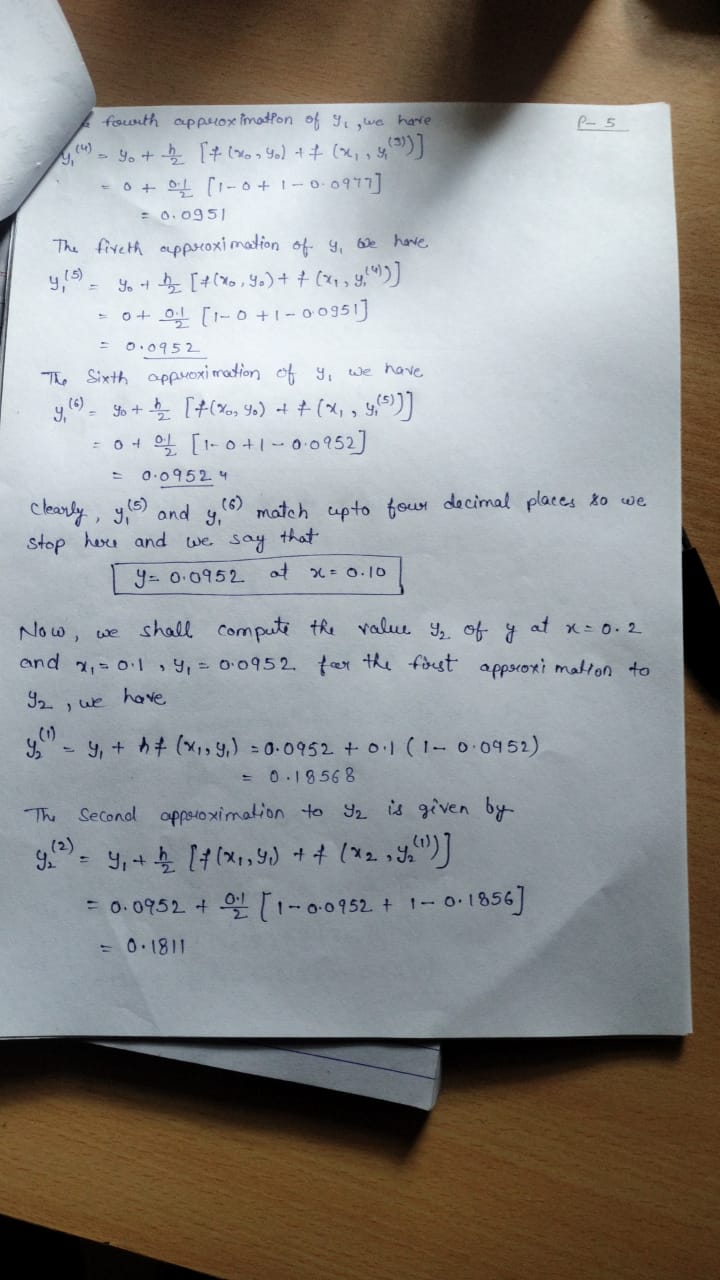 fourth approximation of y₁, we have
P-5
y₁⁽⁴⁾ = y₀ + h/2 [f(x₀, y₀) + f(x₁, y₁⁽³⁾)]
= 0 + 0.1/2 [1-0 + 1-0.0977]
= 0.0951
The fiveth approximation of y₁ we have
y₁⁽⁵⁾ = y₀ + h/2 [f(x₀, y₀) + f(x₁, y₁⁽⁴⁾)]
= 0 + 0.1/2 [1-0 + 1-0.0951]
= 0.0952
The Sixth approximation of y₁ we have
y₁⁽⁶⁾ = y₀ + h/2 [f(x₀, y₀) + f(x₁, y₁⁽⁵⁾)]
= 0 + 0.1/2 [1-0 + 1-0.0952]
= 0.09524
Clearly, y₁⁽⁵⁾ and y₁⁽⁶⁾ match upto four decimal places so we
stop here and we say that
y = 0.0952 at x = 0.10
Now, we shall compute the value y₂ of y at x = 0.2
and x₁ = 0.1, y₁ = 0.0952 for the first approximation to
y₂, we have
y₂⁽¹⁾ = y₁ + hf(x₁, y₁) = 0.0952 + 0.1 (1-0.0952)
= 0.18568
The Second approximation to y₂ is given by
y₂⁽²⁾ = y₁ + h/2 [f(x₁, y₁) + f(x₂, y₂⁽¹⁾)]
= 0.0952 + 0.1/2 [1-0.0952 + 1-0.1856]
= 0.1811